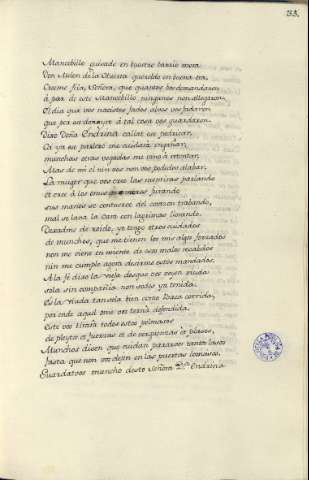 83.
Mancebillo guisado en vuestro barrio mora
Don Melon de la Huerta queredlo en buena ora.
Creeme fija, Señora, que quantos vos demandaron
á par de este mancebillo ningunos non allegaron
El dia que vos nacistes fadas albas vos fadaron
que por ese donayre á tal cosa vos guardaron.
Dixo Doña Endrina callat ese pedricar,
Ca ya ese parlero me cuidará engañar,
munchas otras vegadas me vino á retentar,
Mas de mi el nin vos non vos podedes alabar.
La muger que vos cree las mentiras parlando
et cree á los omes jurando
sus manos se contuerce del corazon trabando,
mal se laba la cara con lagrimas llorando.
Dexadme de roido, yo tengo otros cuidados
de munchos, que me tienen los mis algo forzados
non me viene en miente de esos malos recabdos
nin me cumple agora desirme estos mandados.
A la fé dixo la vieja desque vos veyen viuda
sola sin compañia non sodes ya tenida.
Es la viuda tan sola bien como baca corrida,
por ende aquel ome vos ternia defendida.
Este vos tiraria todos estos pelmasos
de pleytos et fuerzas et de vergüenzas et plasos,
Munchos disen que cuidan pararvos tantos lasos
fasta que non vos dejen en las puertas lumasos.
Guardatvos muncho desto Señora Dña Endrina